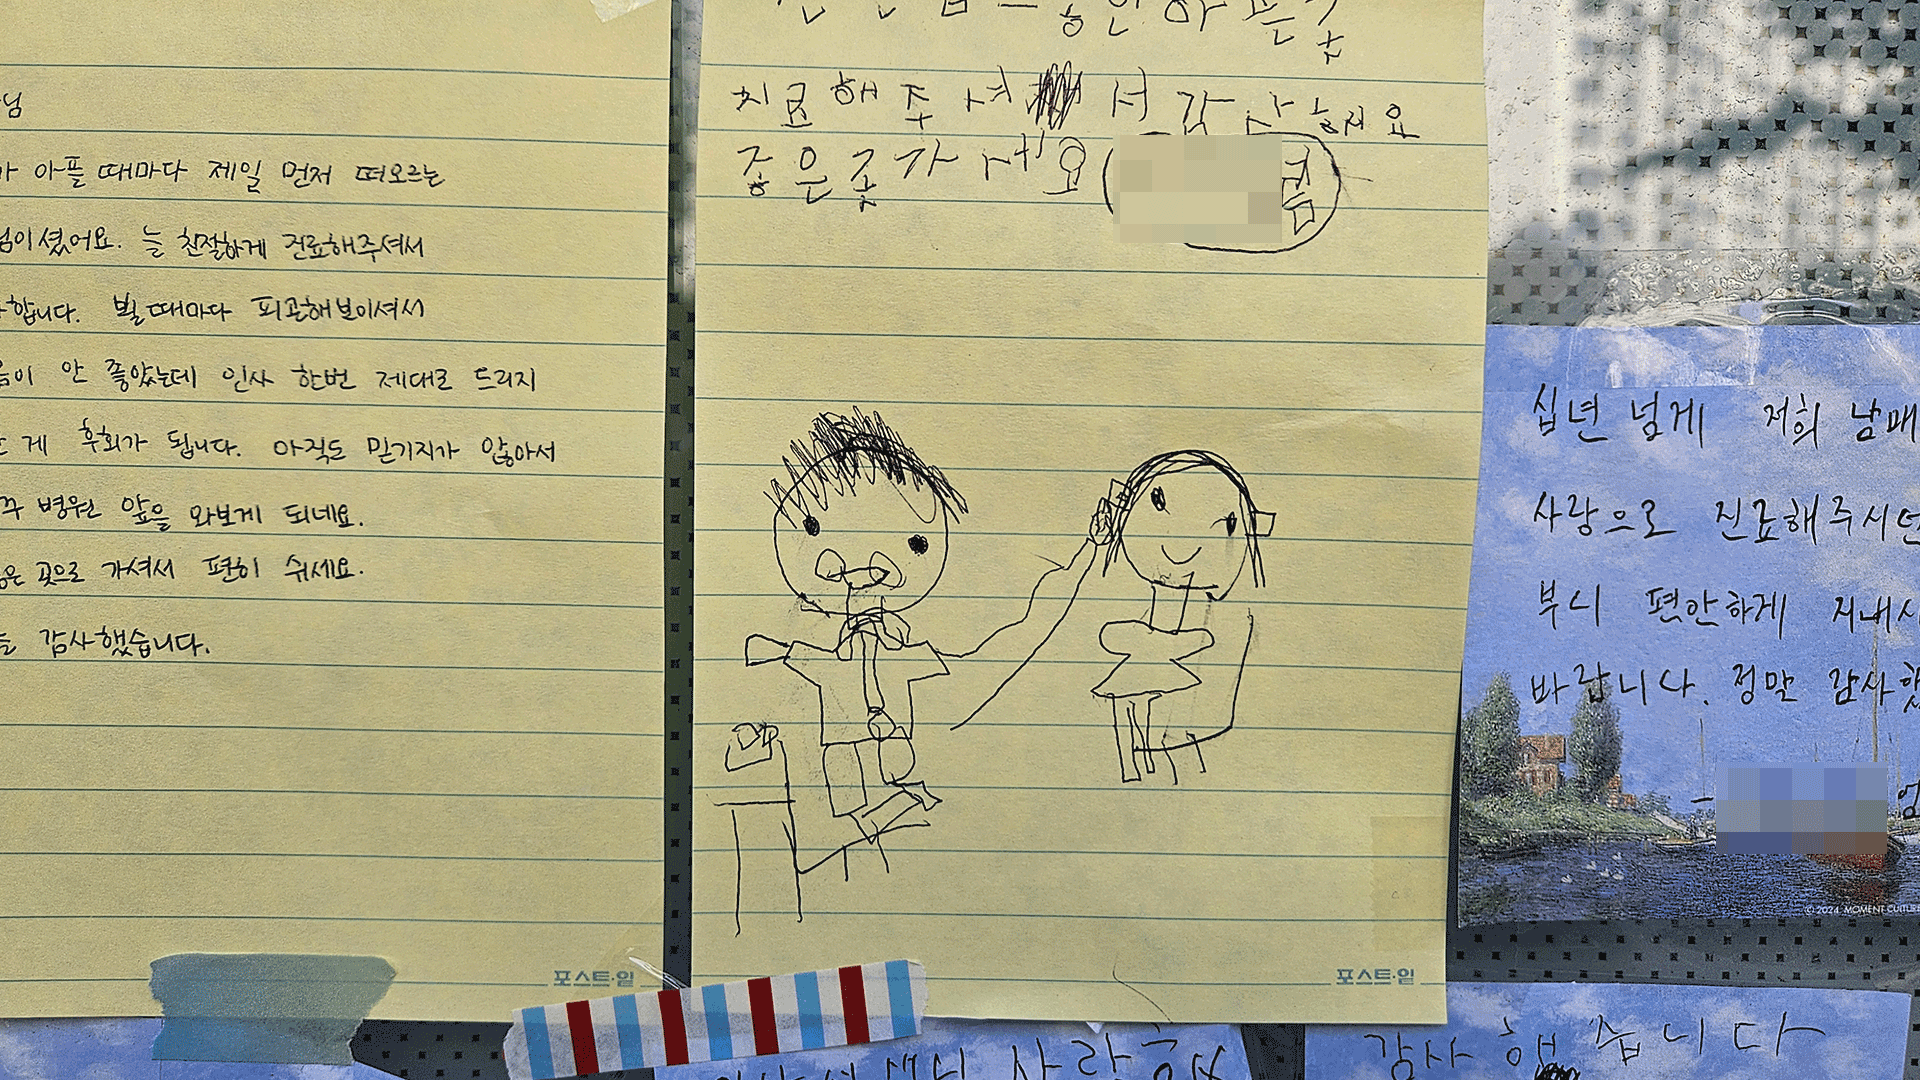 님
아플 때마다 제일 먼저 떠오르는
님이셨어요. 늘 친절하게 진료해주셔서
합니다. 뵐때마다 피곤해보이셔서
음이 안 좋았는데 인사 한번 제대로 드리지
게 후회가 됩니다. 아직도 믿기지가 않아서
병원 앞을 와보게 되네요.
은 곳으로 가셔서 편히 쉬세요.
감사했습니다.
포스트·잇
치료해 주셔서 감사해요
좋은곳 가세요
포스트·잇
십년 넘게 저희 남매
사랑으로 진료해주시던
부디 편안하게 지내시
바랍니다. 정말 감사했
© 2024. MOMENT CULTURE
사랑해
감사했습니다